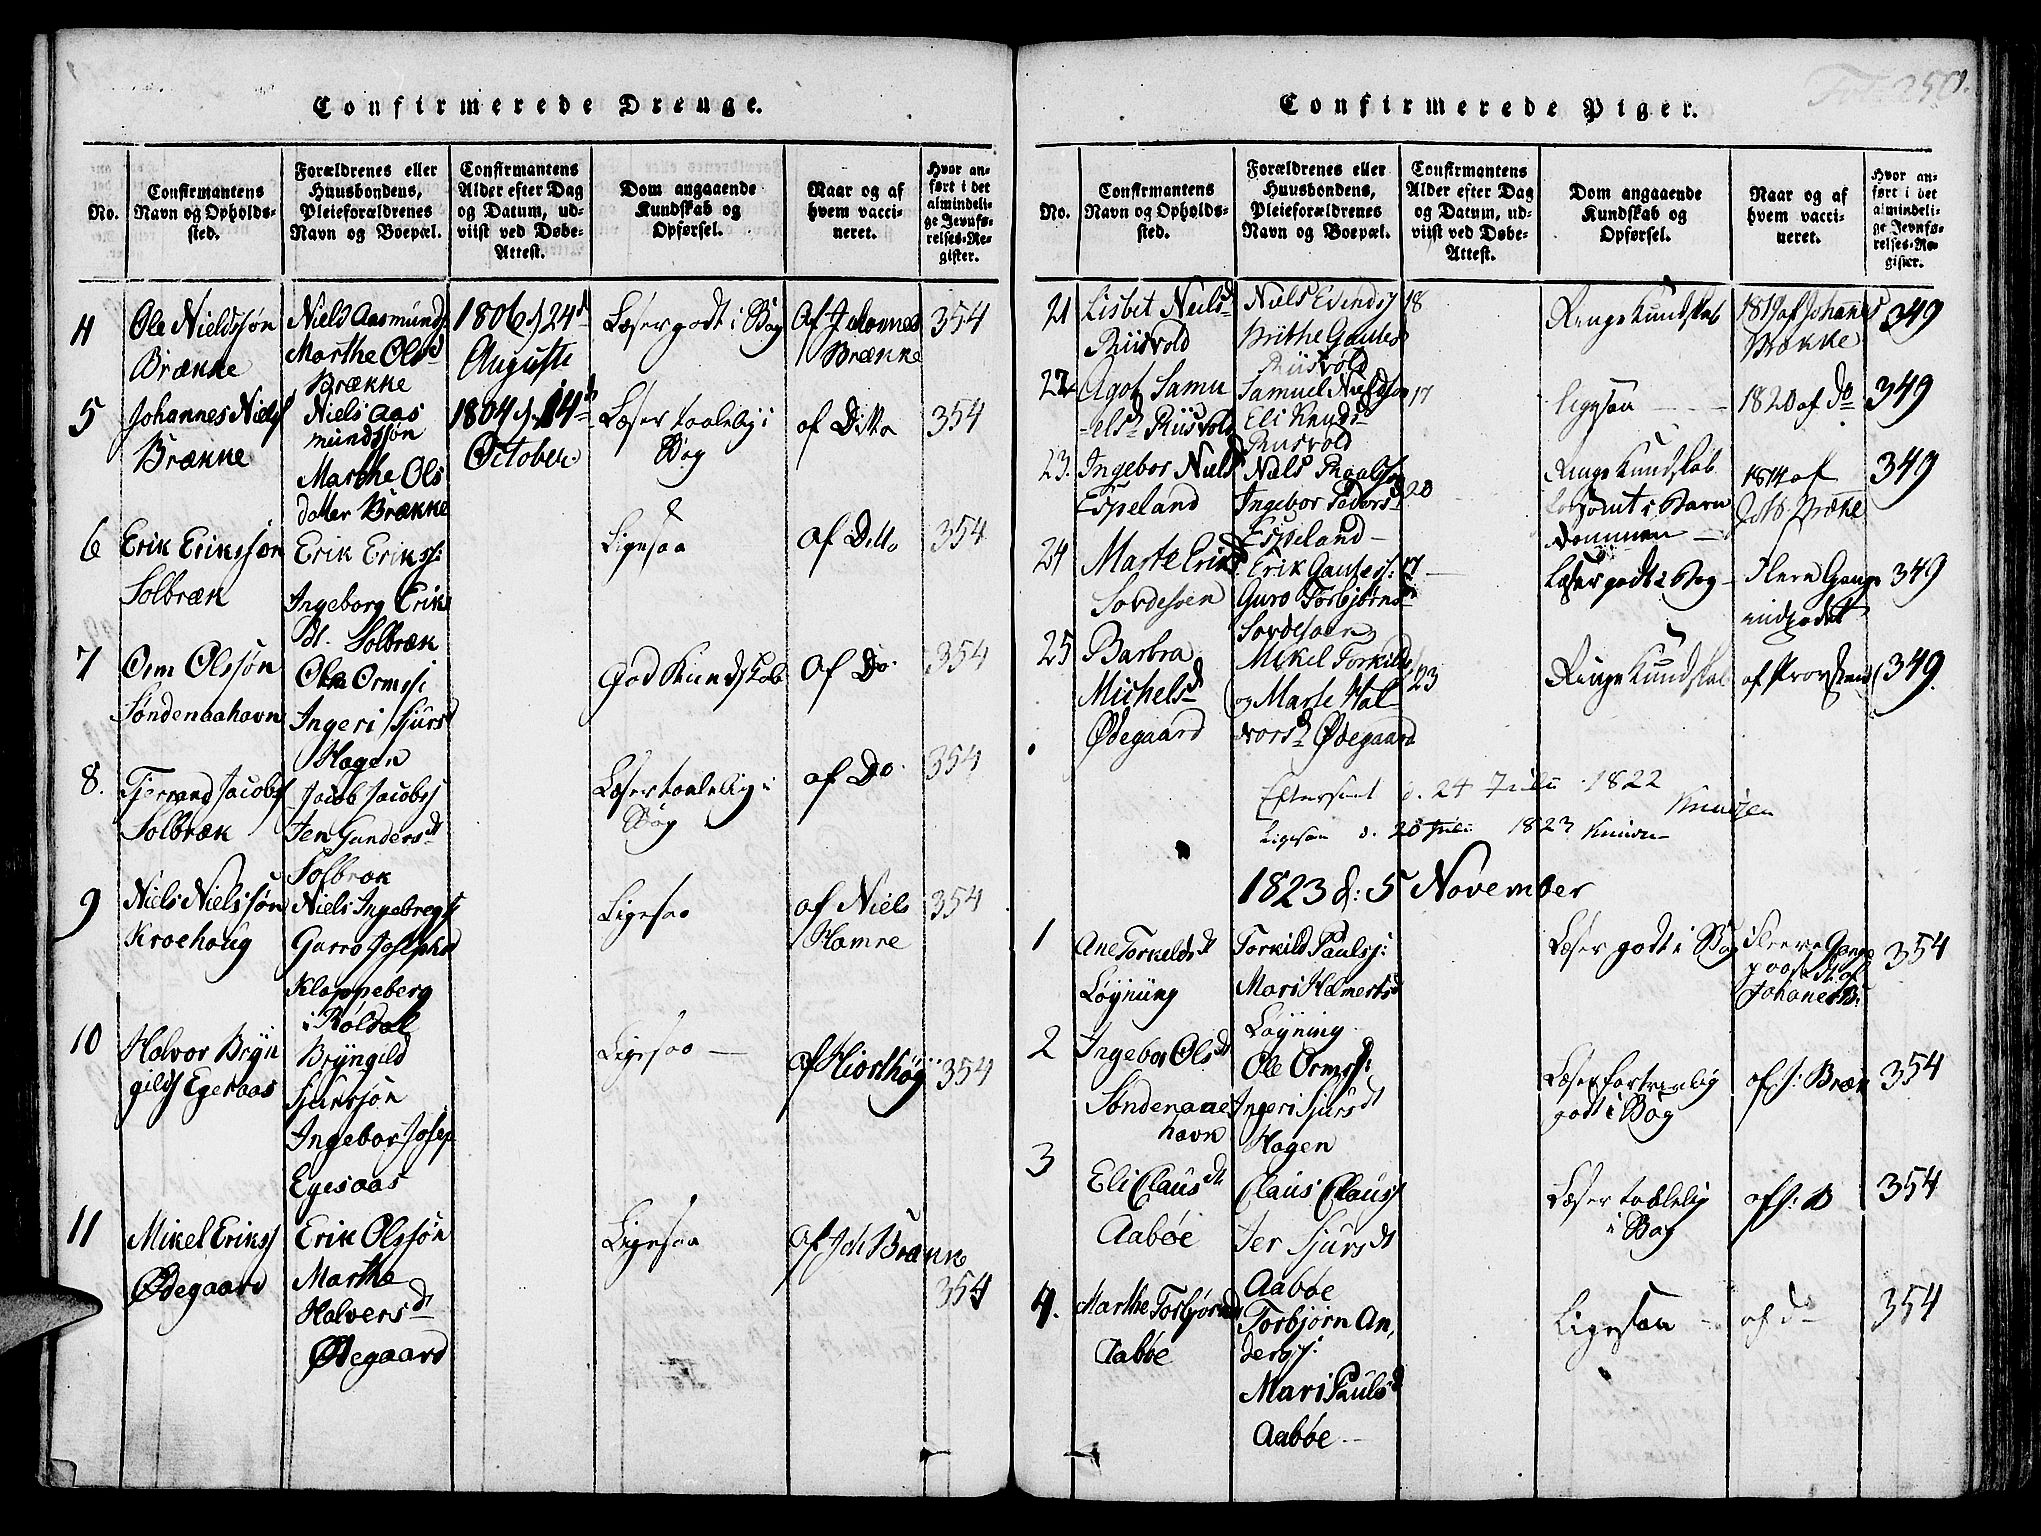 Confirmerede Drenge.
No.
Confirmantens
Navn og Opholds-
sted.
Forældrenes eller
Huusbondens,
Pleieforældrenes
Navn og Boepæl.
Confirmantens
Alder efter Dag
og Datum, ud-
viist ved Døbe-
Attest.
Dom angaaende
Kundskab og
Opførsel.
Naar og af
hvem vacci-
neret.
Hvor an-
ført i det
almindeli-
ge Jevnfø-
relses-Re-
gister.
4
Ole Nieldssøn
Brække
Nield Aasmunds
Marthe Olsd
Brække
1806 d 24d
Auguste
Læser godt i Bog
Af Johannes
Brække
354
5
Johannes Niels
Brække
Niels Aas
mundssøn
Marthe Ols
datter Brække
1804 d. 14d
October
Læser taalelig i
Bog
af Ditto
354
6
Erik Erikssøn
Solbræk
Erik Erikss:
Ingeborg Eriks
dt. Solbræk
Ligesaa
af Ditto
354
7
Orm Olssøn
Søndenaahavn
Ole Ormss:
Ingeri Sjursd
Hagen
God Kundskab
af Do.
354
8.
Tjerrand Jacobs
Solbræk
Jacob Jacobss
Jen Gundersdt
Solbræk
Læser taalelig i
Bog
af Do.
354
9
Niels Nielssøn
Kroehoug
Niels Ingebregts
Garro Josephsd
Kloppeberg
i Røldal
Ligesaa
af Niels
Hamre
354
10
Halvor Bryn
gilds Egesaas
Bryngild
Sjurssøn
Ingebor Josep
Egesaas
Ligesaa
af Hiorthøy
354
11
Mikel Erikss
Ødegaard
Erik Olssøn
Marthe
Halversdt
Ødegaard
Ligesaa
af Joh Brække
354
Fol. 250.
Confirmerede Piger.
No.
Confirmantens
Navn og Opholds-
sted.
Forældrenes eller
Huusbondens,
Pleieforældrenes
Navn og Boepæl.
Confirmantens
Alder efter Dag
og Datum, ud-
viist ved Døbe-
Attest.
Dom angaaende
Kundskab og
Opførsel.
Naar og af
hvem vacci-
neret.
Hvor an-
ført i det
almindeli-
ge Jevnfø-
relses-Re-
gister.
21
Lisbet Neilsd
Riisvold
Niels Evindss
Brithe Gautes
Riisvold
18
Ringe Kundskab
1819 af Johanes
Brække
349
22
Agot Samu
elsd Riisvold
Samuel Nieldson
Eli Knudsd
Riisvold
17
Ligesaa
1820 af Do
349
23.
Ingebor Nields
Espeland
Niels
Ingebor Tedorsd
Espeland
20
Ringe Kundskab
dommen
1814 af
Joh Brække
349
24
Marte Eriksd
Sordesoen
Erik Gautess:
Guro Torbjørnsd
Sordesoen
17
Læser godt i Bog
flere Gange
indpodet
349
25
Barbra
Michelsd
Ødegaard
Mikel Torkilds
og Marte Hal
vorsd Ødegaard
23
Ringe Kundskab
af Provsten
349.
Efterseet d. 24 Julii 1822 Knudzen
Ligesaa d. 20 Julii 1823
1823 d: 5 November
1
Ane Torkeldsdt
Løyning
Torkild Paulss:
Mari Helmertsd
Løyning
Læser godt i Bog
flere Gange
Johanes B:
354
2
Ingebor Olsdt
Søndenaae
havn
Ole Ormss:
Ingeri Sjursdt
Hagen
Læser fortrinlig
godt i Bog
af J: Bræk
354
3
Eli Clausdt
Aabøe
Claus Clauss
Jer Sjursdt
Aabøe
Læser taalelig
i Bog
af J: B
354
4.
Marthe Torbjørnsd
Aabøe
Torbjørn An,
derss:
Mari Paulsd
Aabøe
Ligesaa
af do
354